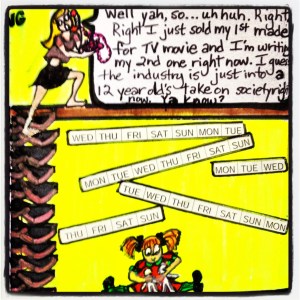 NG
Well yah, so... uh huh. Right.
Right I just sold my 1st made
for TV movie and I'm writing
my 2nd one right now. I guess
the industry is just into a
12 year old's take on society right
now. Ya know?
WED THU FRI SAT SUN MON TUE
MON TUE WED THU FRI SAT SUN
MON TUE WED
TUE WED THU FRI SAT SUN MON
THU FRI SAT SUN